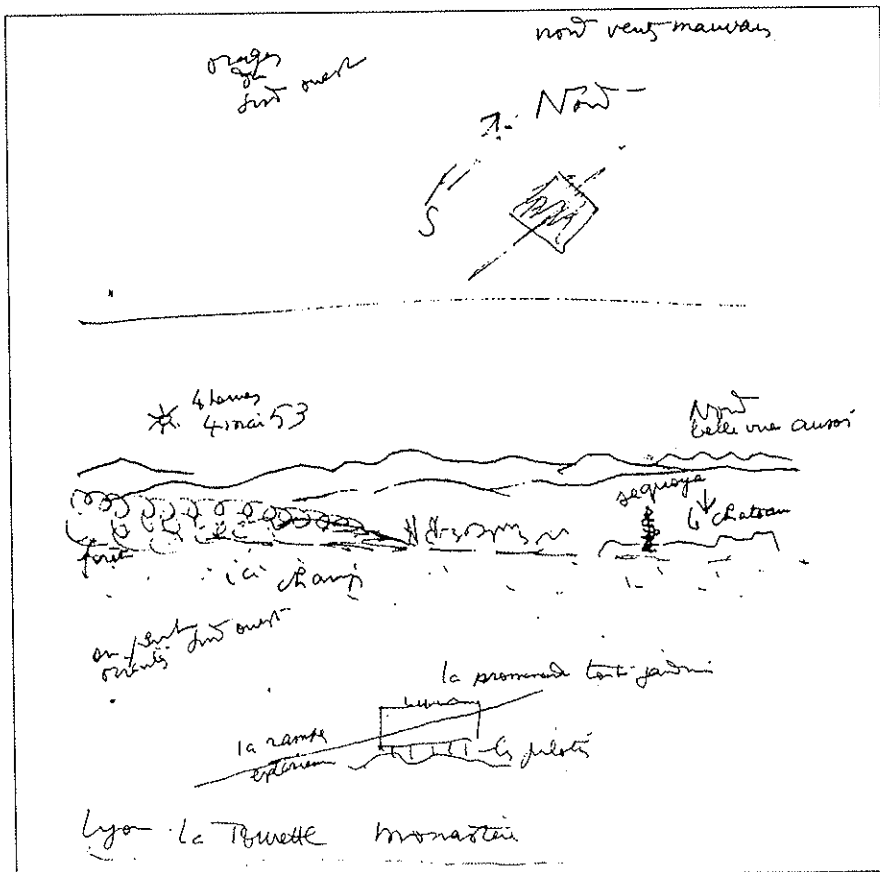 nord vents mauvais
orages
du
sud ouest
Nord
S
4 heures
4 mai 53
Nord
belle vue aussi
sequoya
le chateau
foret
ici champ
on peut
orienter sud ouest
la promenade toit-jardin
la rampe
exterieure
les pilotis
Lyon la Tourette monastère